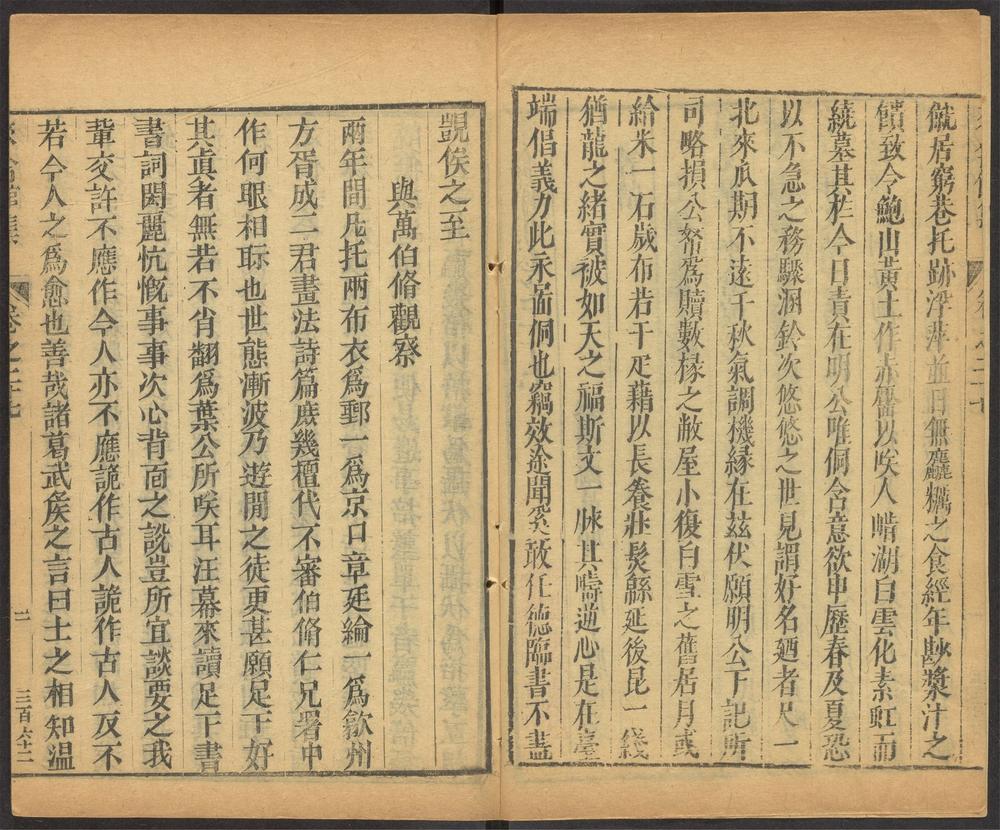 僦居窮巷托跡浮萍並日無麤糲之食經年尠漿汁之
饋致令鮑山黃土作赤鬣以咲人𡺚湖白雲化素虹而
繞墓其在今日責在明公唯侗含意欲申歷春及夏恐
以不急之務驟溷鈴次悠悠之世見謂好名廼者尺一
北來瓜期不遠千秋氣調機緣在茲伏願明公下記所
司略損公帑爲贖數椽之敝屋小復白雪之舊居月或
給米一石歲布若干疋藉以長養壯髮緜延後昆一綫
猶龍之緒實被如天之福斯文一脉其疇逆心是在臺
端倡義力此永啚侗也竊效塗聞奚敢任德臨書不盡
覬俟之至
與萬伯脩觀察
兩年間凡托兩布衣爲郵一爲京口章廷綸一爲歙州
方胥成二君畫法詩篇庶幾擅代不審伯脩仁兄署中
作何眼相眎也世態漸波乃遊閒之徒更甚願足下好
其眞者無若不肖翻爲葉公所咲耳汪幕來讀足下書
書詞閎麗忼慨事事次心背面之說豈所宜談要之我
輩交許不應作今人亦不應詭作古人詭作古人反不
若今人之爲愈也善哉諸葛武侯之言曰士之相知溫
卷之二十七
三百六十二